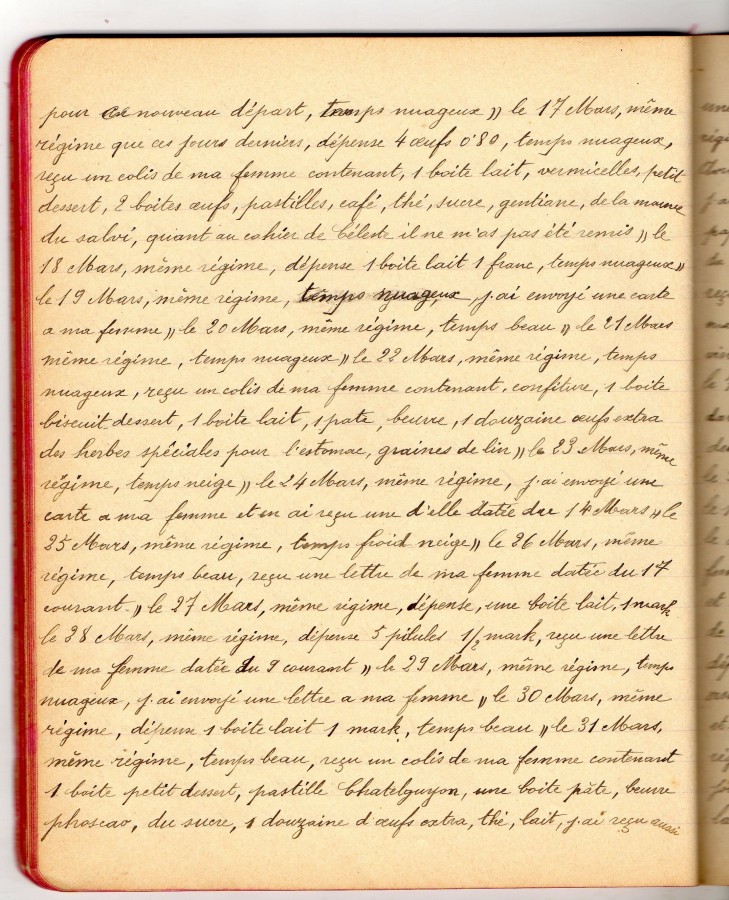 pour ce nouveau départ, temps nuageux )) le 17 Mars, même
régime que ces jours derniers, dépense 4 œufs 0'80, temps nuageux,
reçu un colis de ma femme contenant, 1 boite lait, vermicelles, petit
dessert, 2 boites œufs, pastilles, café, thé, sucre, gentiane, de la mauve
du salvi, quant au cahier de Céleste il ne m'as pas été remis )) le
18 Mars, même régime, dépense 1 boite lait 1 franc, temps nuageux ))
le 19 Mars, même régime, temps nuageux, j'ai envoyé une carte
a ma femme )) le 20 Mars, même régime, temps beau )) le 21 Mars
même régime, temps nuageux )) le 22 Mars, même régime, temps
nuageux, reçu un colis de ma femme contenant, confiture, 1 boite
biscuit dessert, 1 boite lait, 1 pate, beurre, 1 douzaine œufs extra
des herbes spéciales pour l'estomac, graines de lin )) le 23 Mars, même
régime, temps neige )) le 24 Mars, même régime, j'ai envoyé une
carte a ma femme et en ai reçu une d'elle datée du 14 Mars )) le
25 Mars, même régime, temps froid neige )) le 26 Mars, même
régime, temps beau, reçu une lettre de ma femme datée du 17
courant )) le 27 Mars, même régime, dépense, une boite lait, 1 mark
le 28 Mars, même régime, dépense 5 pilules 1/2 mark, reçu une lettre
de ma femme datée du 9 courant )) le 29 Mars, même régime, temps
nuageux, j'ai envoyé une lettre a ma femme )) le 30 Mars, même
régime, dépense 1 boite lait 1 mark, temps beau )) le 31 Mars,
même régime, temps beau, reçu un colis de ma femme contenant
1 boite petit dessert, pastille Chatelguyon, une boite pâte, beurre
phoscao, du sucre, 1 douzaine d'œufs extra, thé, lait, j'ai reçu aussi